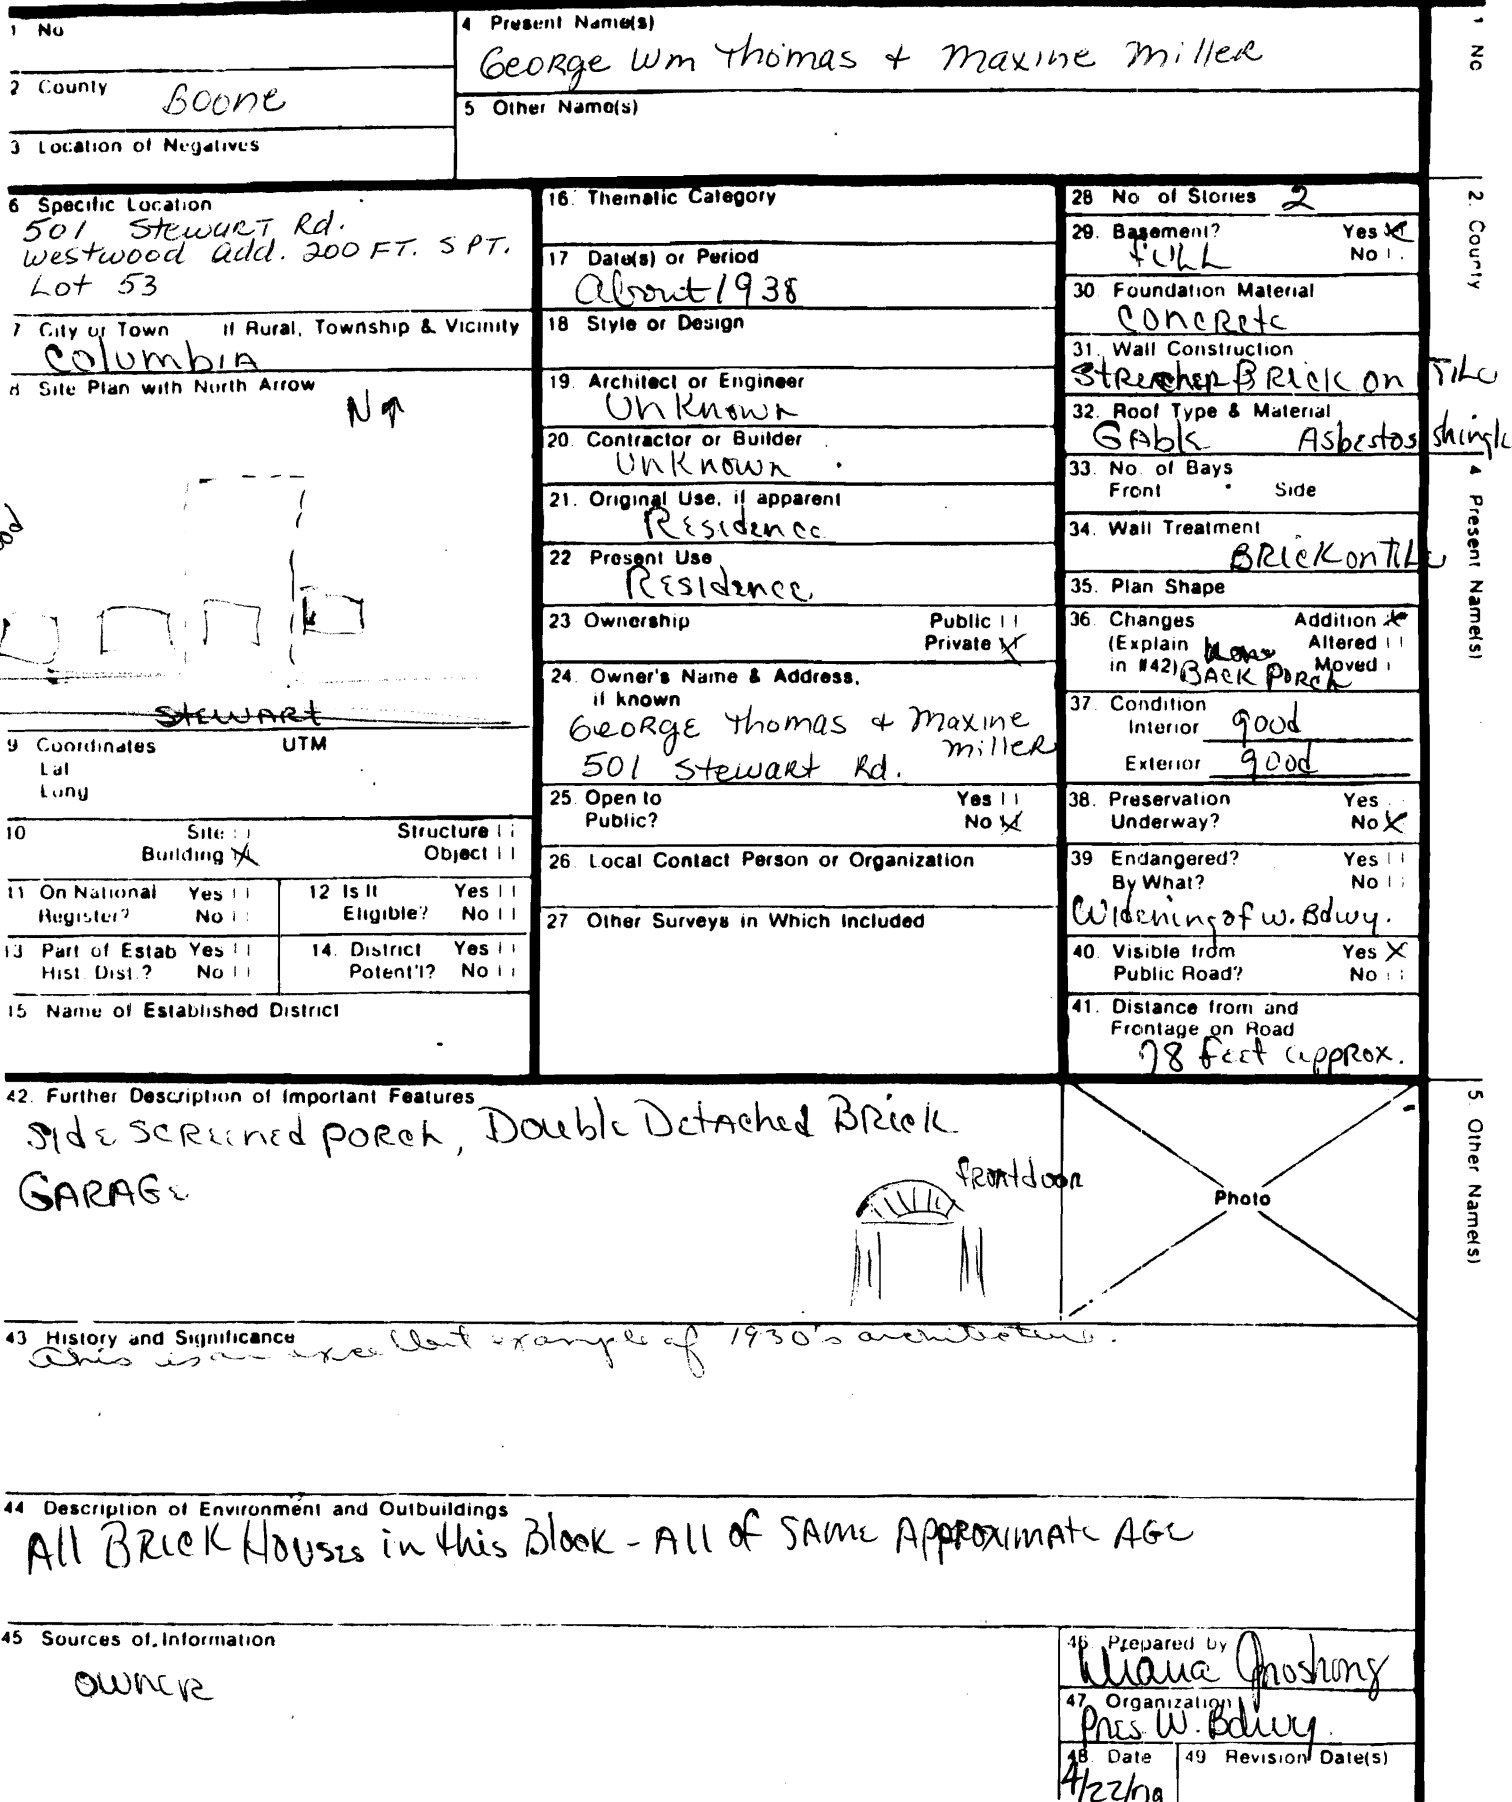 1 No
4 Present Name(s)
George Wm Thomas + Maxine Miller
2 County
Boone
5 Other Name(s)
3 Location of Negatives
6 Specific Location
501 Stewart Rd.
Westwood Add. 200 FT. S PT.
Lot 53
7 City or Town If Rural, Township & Vicinity
Columbia
8 Site Plan with North Arrow
N
STEWART
9 Coordinates UTM
Lat
Long
10 Site
Structure
Building X
Object
11 On National Register? Yes No
12 Is It Eligible? Yes No
13 Part of Estab Hist. Dist.? Yes No
14. District Potent'l? Yes No
15 Name of Established District
16. Thematic Category
17 Date(s) or Period
About 1938
18 Style or Design
19. Architect or Engineer
Unknown
20. Contractor or Builder
Unknown
21. Original Use, if apparent
Residence
22 Present Use
Residence
23 Ownership Public
Private X
24. Owner's Name & Address,
if known
George Thomas + Maxine
Miller
501 Stewart Rd.
25. Open to Public? Yes
No X
26. Local Contact Person or Organization
27 Other Surveys in Which Included
28 No of Stories 2
29. Basement? Yes X
Full No
30. Foundation Material
Concrete
31. Wall Construction
Stretcher Brick on Tile
32. Roof Type & Material
Gable Asbestos shingle
33. No. of Bays
Front Side
34. Wall Treatment
Brick on Tile
35. Plan Shape
36. Changes Addition X
(Explain Altered
in #42) Back Porch Moved
37. Condition
Interior good
Exterior good
38. Preservation Yes
Underway? No X
39 Endangered? Yes
By What? No
Widening of W. Bdwy.
40. Visible from Yes X
Public Road? No
41. Distance from and
Frontage on Road
78 feet approx.
42. Further Description of Important Features
Side screened porch, Double Detached Brick
Garage
front door
Photo
43 History and Significance
This is an excellent example of 1930's architecture.
44 Description of Environment and Outbuildings
All Brick Houses in this Block - All of same approximate age
45 Sources of Information
owner
46. Prepared by
47. Organization
Pres W. Bdwy.
48. Date
4/22/79
49 Revision Date(s)
1 No
2. County
4 Present Name(s)
5. Other Name(s)